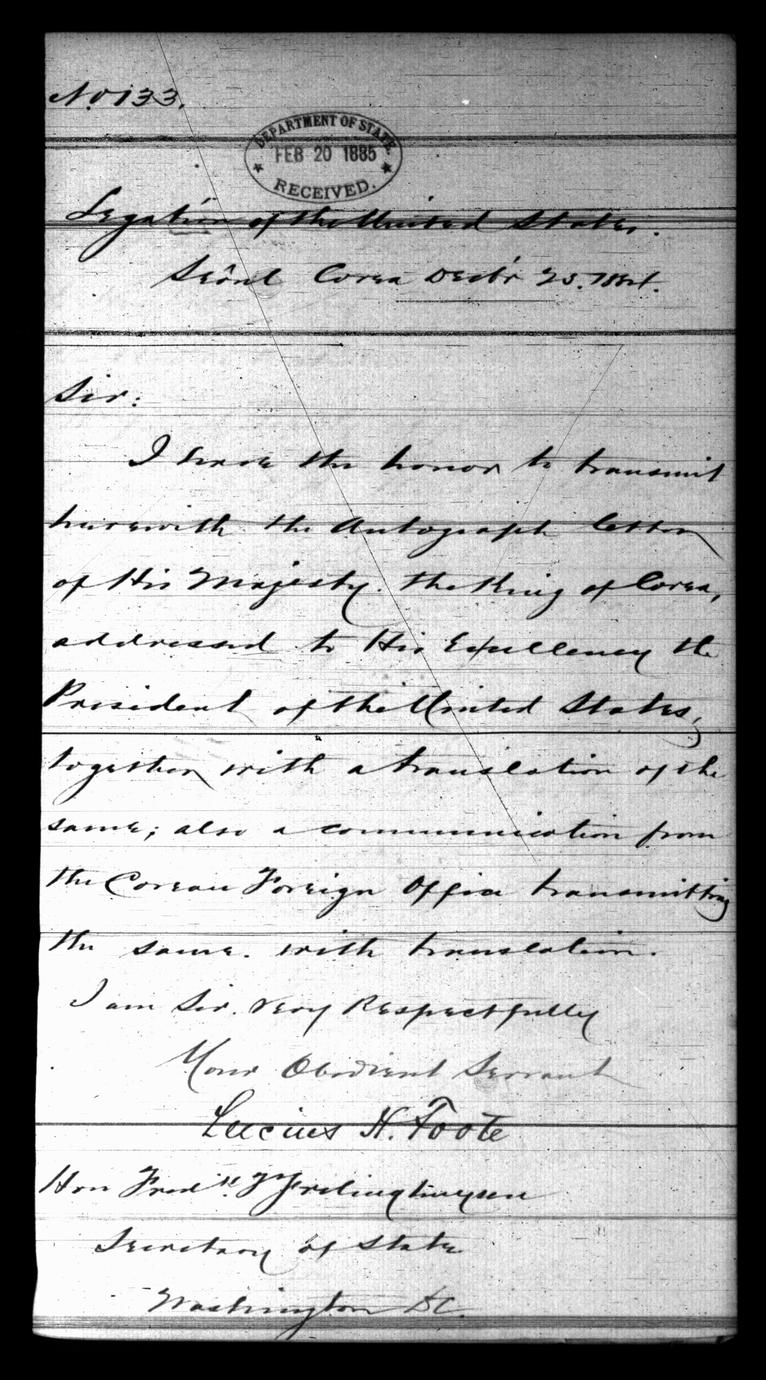 No 133.
DEPARTMENT OF STATE.
FEB 20 1885
RECEIVED.
Legation of the United States.
Seoul Corea Decb'r 25. 1884.
Sir:
I have the honor to transmit
herewith the Autograph letter
of His Majesty. the King of Corea,
addressed to His Excellency the
President of the United States,
together with a translation of the
same; also a communication from
the Corean Foreign Office transmitting
the same. with translation.
I am Sir. Very Respectfully
Your Obedient Servant
Lucius H. Foote
Hon Fredk. T Frelinghuysen
Secretary of State
Washington D.C.